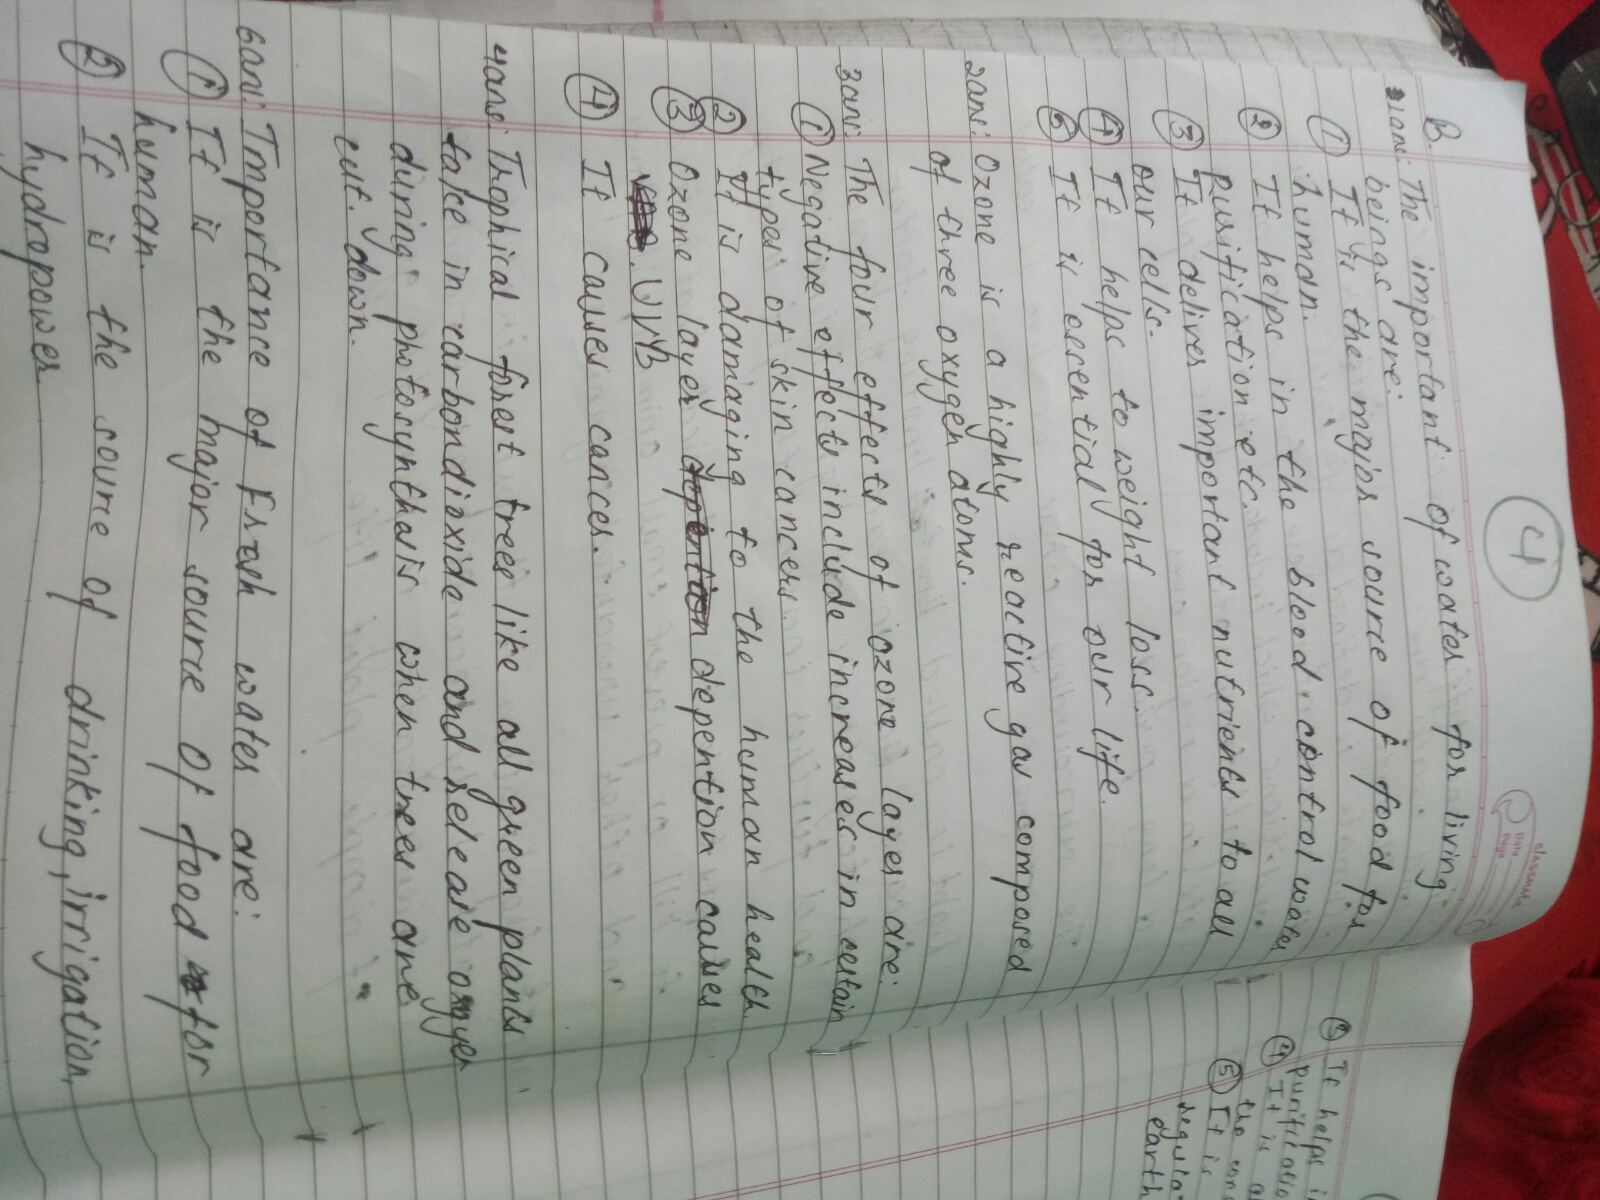 4
classmate
Date
Page
B.
1ans: The important of water for living
beings are:
① It is the major source of food for
human.
② It helps in the blood control water
purification etc.
③ It deliver important nutrients to all
our cells.
④ It helps to weight loss.
⑤ It is essential for our life.
2ans: Ozone is a highly reactive gas composed
of three oxygen atoms.
3ans: The four effects of ozone layer are:
① Negative effects include increases in certain
types of skin cancers.
② It is damaging to the human health
③ Ozone layer depention causes
UVB
④ It causes cancer.
4ans: Trophical forest trees like all green plants
take in carbondioxide and release oxyen
during photosynthesis when trees are
cut down.
6ans: Importance of Fresh water are:
① It is the major source of food for
human.
② It is the source of drinking, irrigation,
hydropower
③ It helps
④ It is
the
⑤ It is
earth